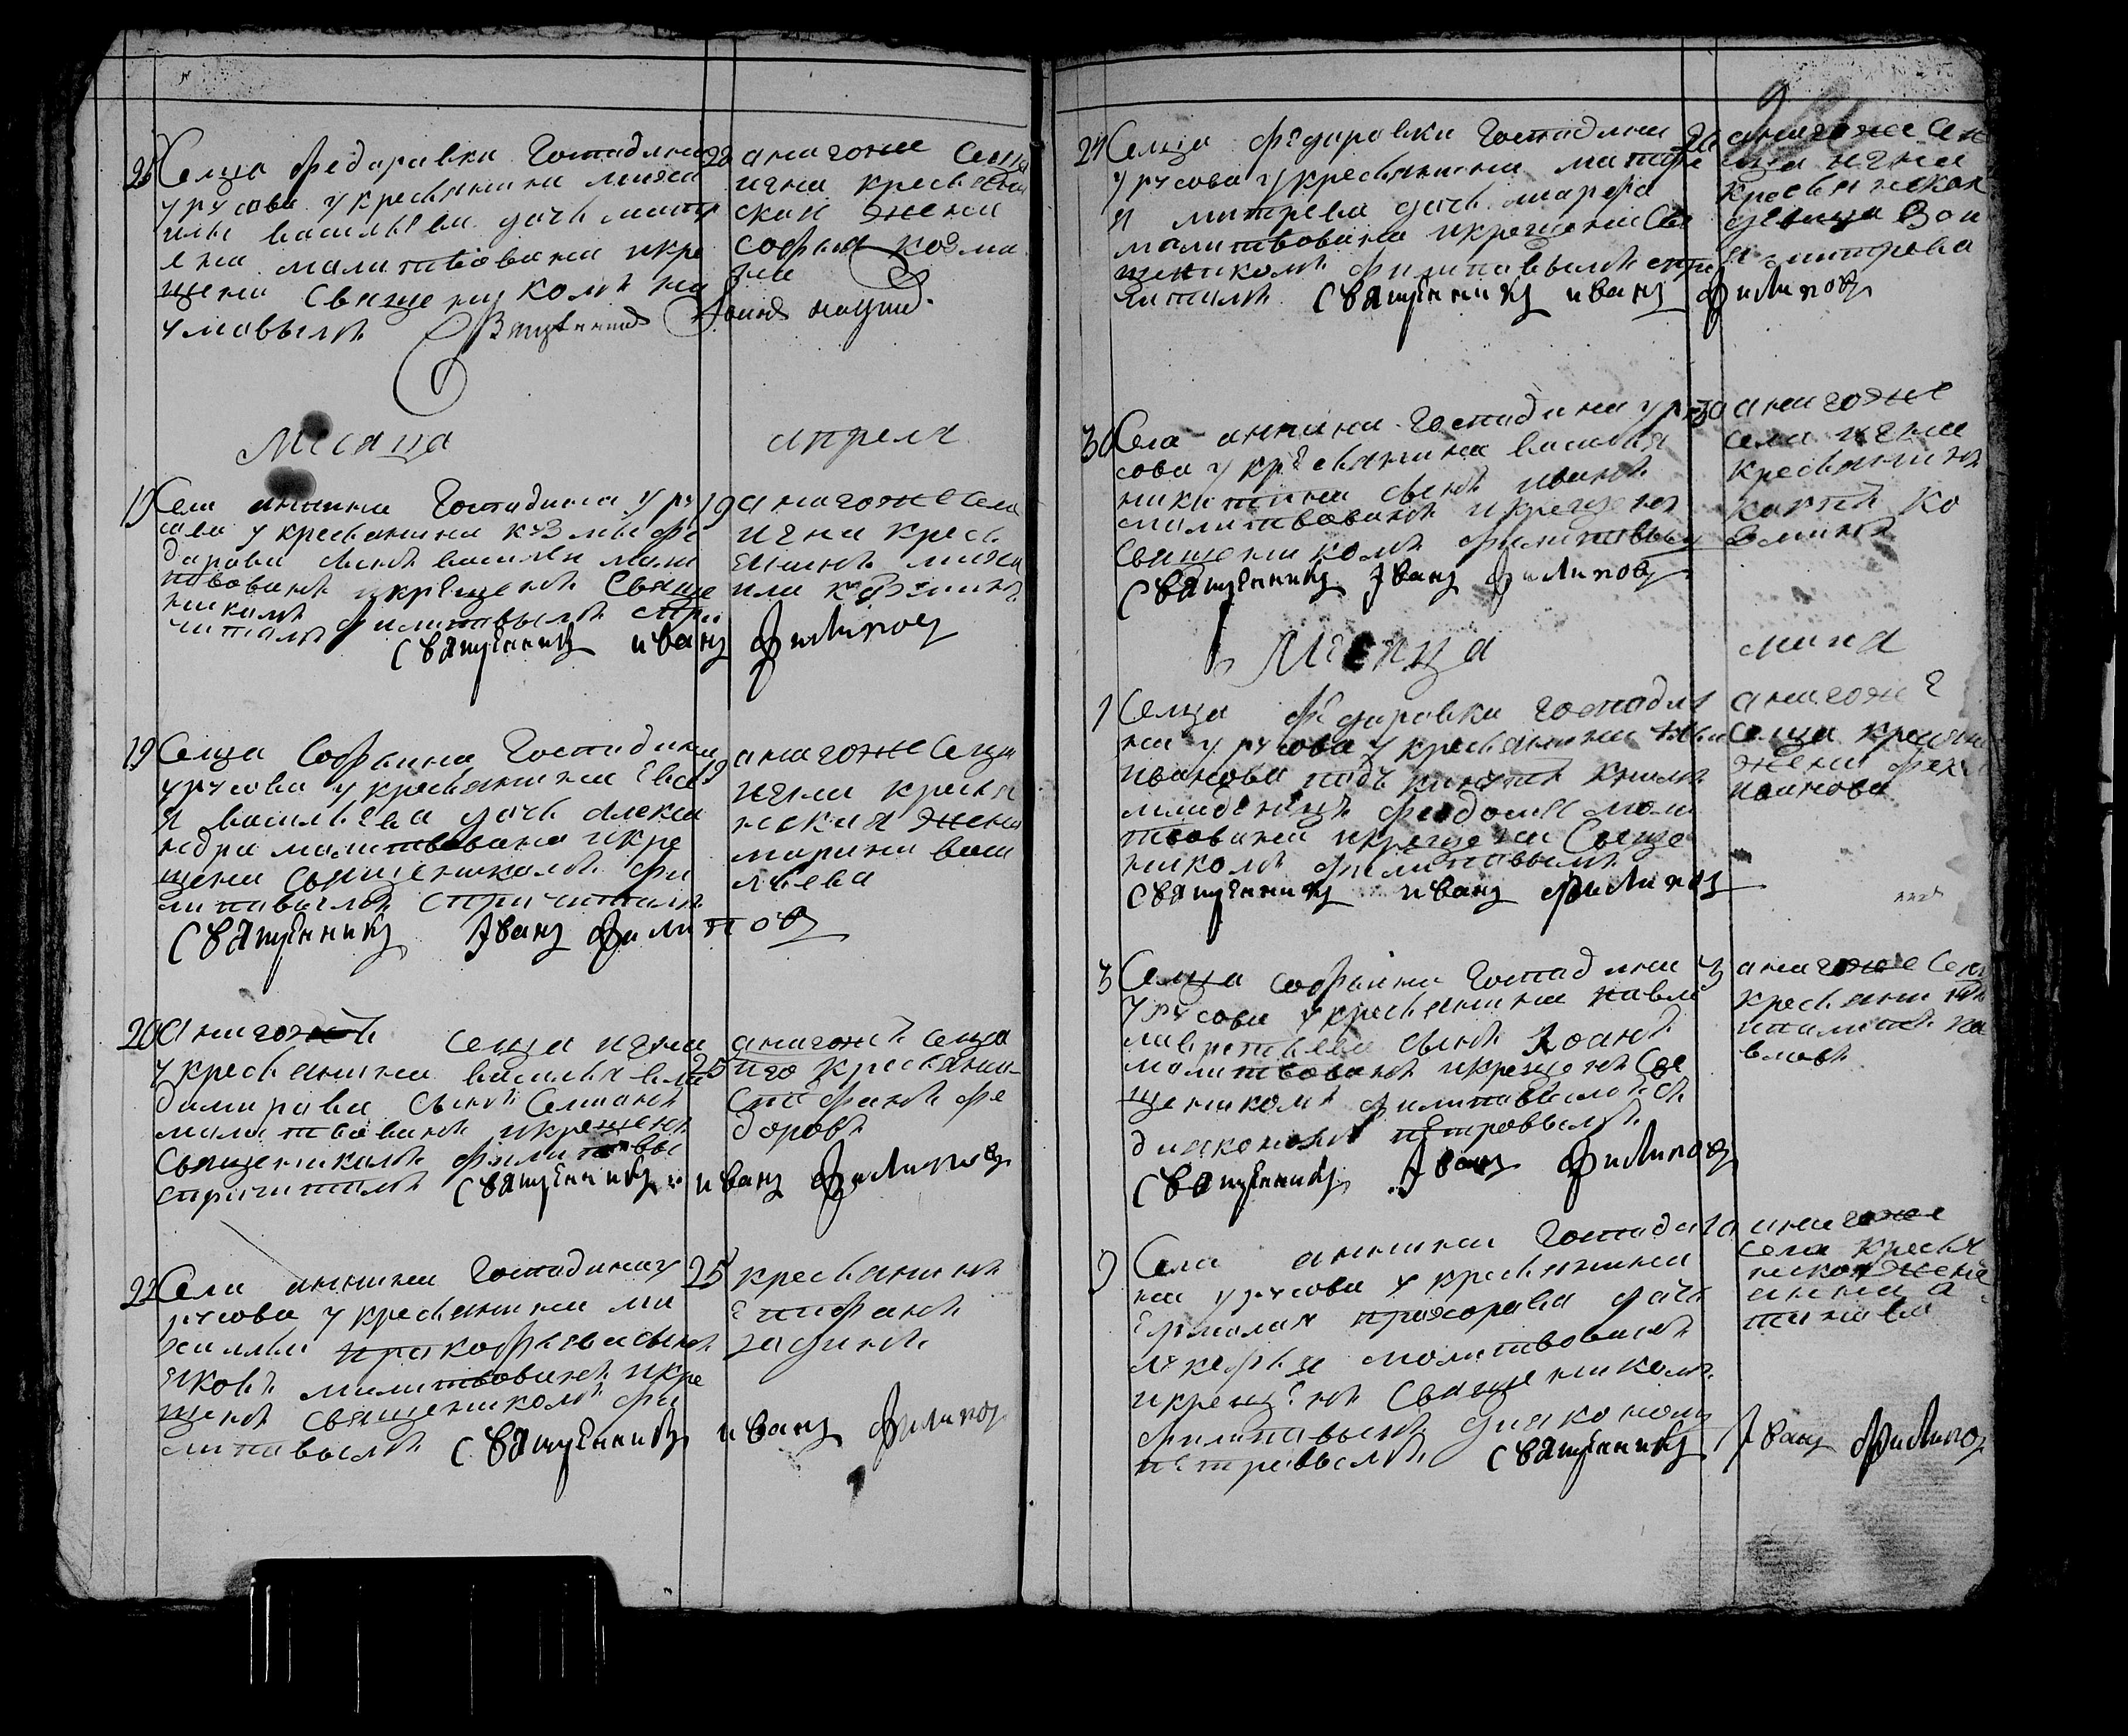 26 Селца Федаравки Господина
урусова у кресьянина миха
илы васильева дочь матр
ена малитвована икре
щена Священикомъ на
умовымъ
22 анагоже Селца
игна кресьян
ская жена
софья козми
на
Месяца
апреля
19 Села аннина Господина уру
сова у кресьянина кузмы фе
дарова сынъ василеи мали
твованъ икрещенъ Священ
никомъ филиповымъ спри
читомъ
19 анагоже Села
игна кресь
енинъ миха
ила козминъ
Священникъ иванъ филиповъ
19 Селца Софьина Господина
урусова у кресьянина Евсе
я васильева дочь алекса
ндра малитвована икре
щена священикомъ фи
липавымъ спричитомъ
19 анагоже Селца
игна кресья
нская жена
марина васи
льева
Священникъ Иванъ филиповъ
20 анагожъ селца игна
у кресьянина василья вла
димирава сынъ Семионъ
малитвованъ икрещенъ
Священикомъ филиповы
спричитомъ
25 анагожъ селца
иго кресьянин
Стефанъ фе
доровъ
Священникъ иванъ филиповъ
22 Села аннина Господина у
русова у кресьянина ма
ксима пракофьева сынъ
Яковъ малитвованъ икре
щенъ священикомъ фи
липавымъ
25 кресьянинъ
Епифанъ
Священникъ иванъ филиповъ
24 Селца федаравки Господина
урусова у кресьянина матфе
я митрева дочь марфа
малитвована икрещена Свя
щеникомъ филипавымъ спри
читомъ
анагоже Сел
ца игна
кресьянская
девица
митрева
Священникъ иванъ филиповъ
30 Села аннина Господина уру
сова у кресьянина василья
никитина сынъ иванъ
малитвованъ икрещенъ
Священикомъ филиповы
30 анагоже
села игна
кресьянинъ
Священникъ Иванъ филиповъ
Месяца
маия
1 Селца федаравки господи
на урусова у кресьянина
иванова падъкинутъ
младенецъ феодосия моли
твована икрещена Свяще
никомъ филиповымъ
анагоже
Селца кресьян
жена фекла
иванова
Священникъ иванъ филиповъ
3 Селца софьина Господина
урусова у кресьянина павла
лаврентьева сынъ Иоанъ
малитвованъ икрещенъ Свя
щеникомъ филипавымъ съ
дияконамъ петровымъ
3 анагоже Селц
кресьянинъ
ипалитъ па
вловъ
Священникъ Иванъ филиповъ
9 Села аннина Господи
на урусова у кресьянина
Ермолая прохорава дочь
молитвована
икрещенъ Священикомъ
филипавымъ дияконамъ
петровымъ
10 анагоже
села кресья
нская жена
анна а
Священникъ Иванъ филиповъ